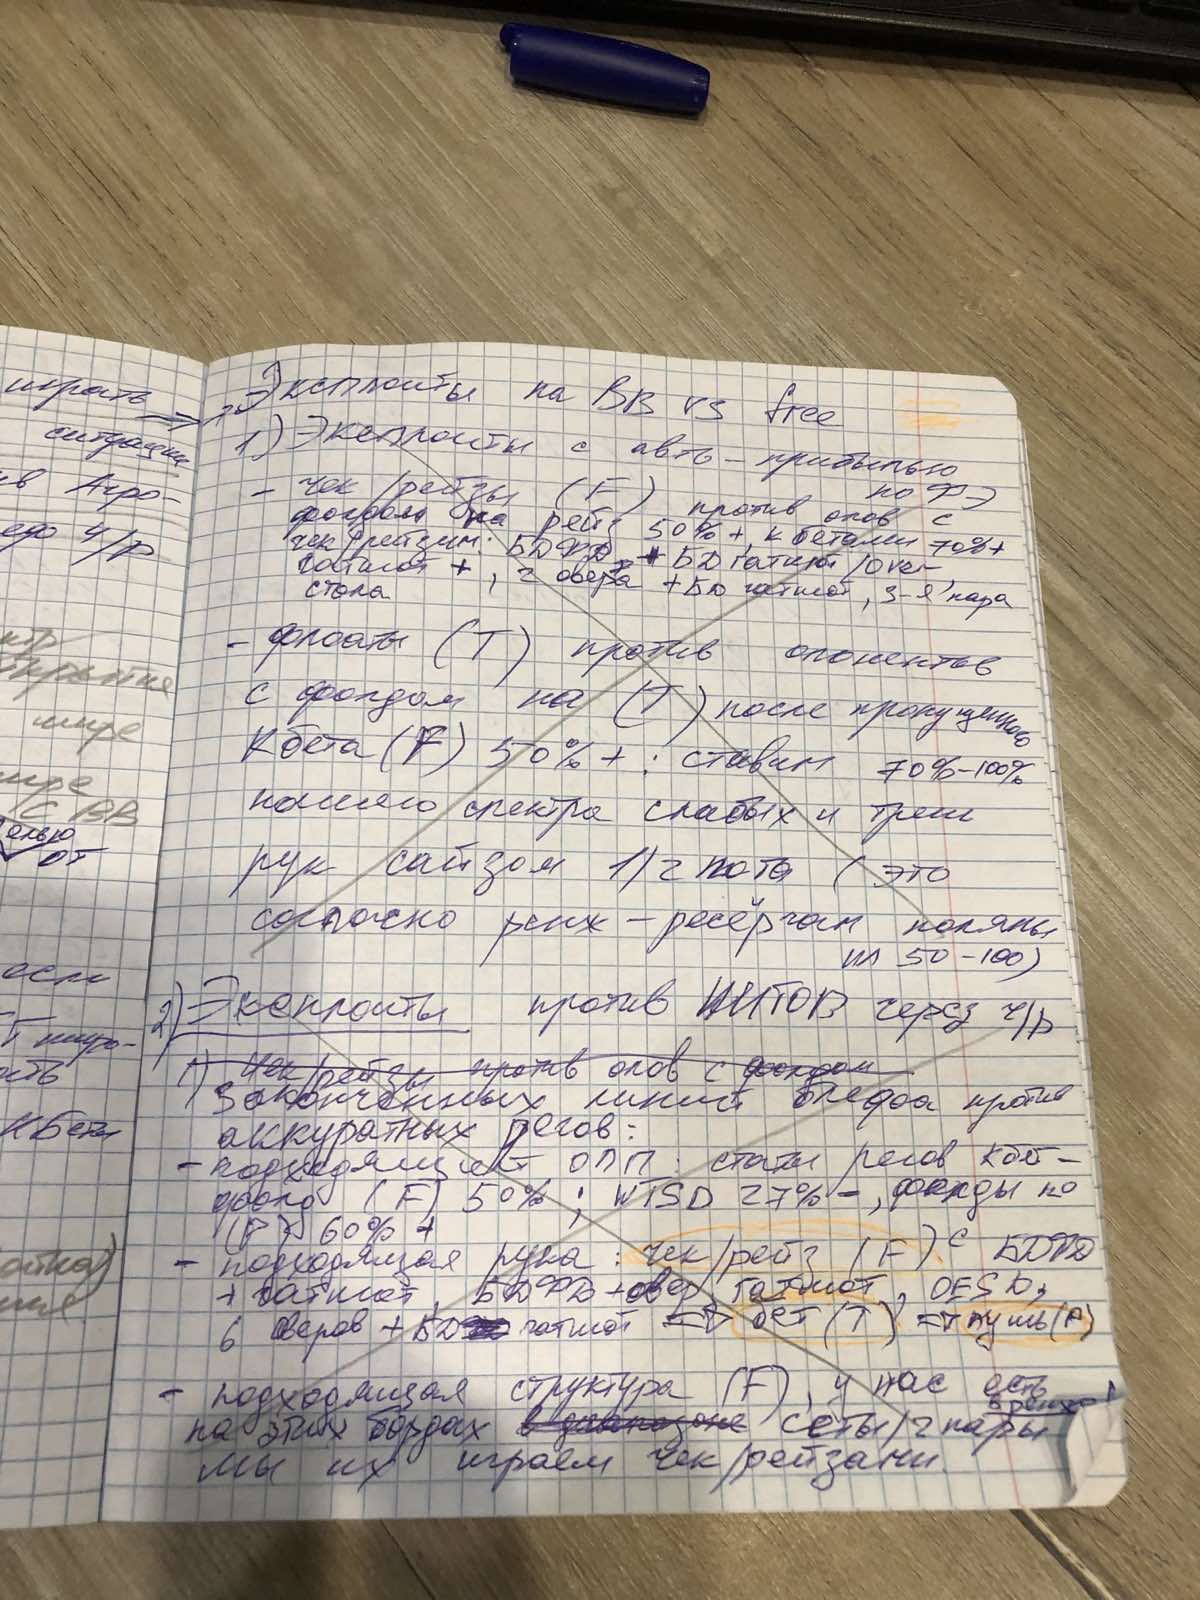 играть
ситуации
ив Агро-
ч/р
мире
с ВВ
целью
от
если
Кбета
Эксплойты на BB vs free
1) Эксплойты с авто-прибылью
по ФЭ
- чек/рейзы (F) против опов с
фолдом на рейз 50%+, кбетами 70%+
чек/рейзим: БДФД + БД гатшот/over
гатшот+, 2 овера + БД гатшот, 3-я пара
стола
- флоаты (T) против опонентов
с фолдом на (T) после пропущенного
Кбета (F) 50%+: ставим 70%-100%
нашего спектра слабых и треш
рук сайзом 1/2 пота (это
согласно ренж-ресёрчам поляны
нл 50-100)
2) Эксплойты против НИТОВ через ч/р
1) Чек/рейзы против опов с фолдом
Законченных линий блефа против
аккуратных регов:
- подходящий ОПП: статы регов кбет-
фолд (F) 50%; WTSD 27%-, фолды по
(P) 60%+
- подходящая рука: чек/рейз (F) с БДФД
+ гатшот, БДФД+овер, гатшот, OESD,
6 оверов + БД гатшот => бет (T) => пуш(P)
- подходящая структура (F), у нас есть
в ренже
на этих бордах в диапазоне сеты/2 пары
мы их играем чек/рейзами.